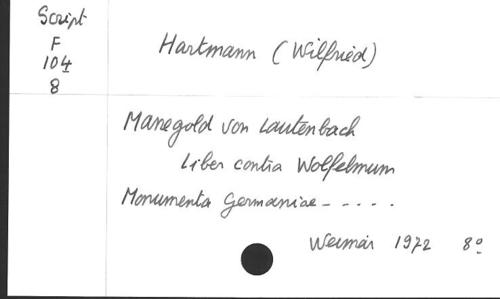 Script
F
104
8
Hartmann (Wilfried)
Manegold von Lautenbach
Liber contra Wolfelmum
Monumenta Germaniae - - - - -
Weimar 1972 8º